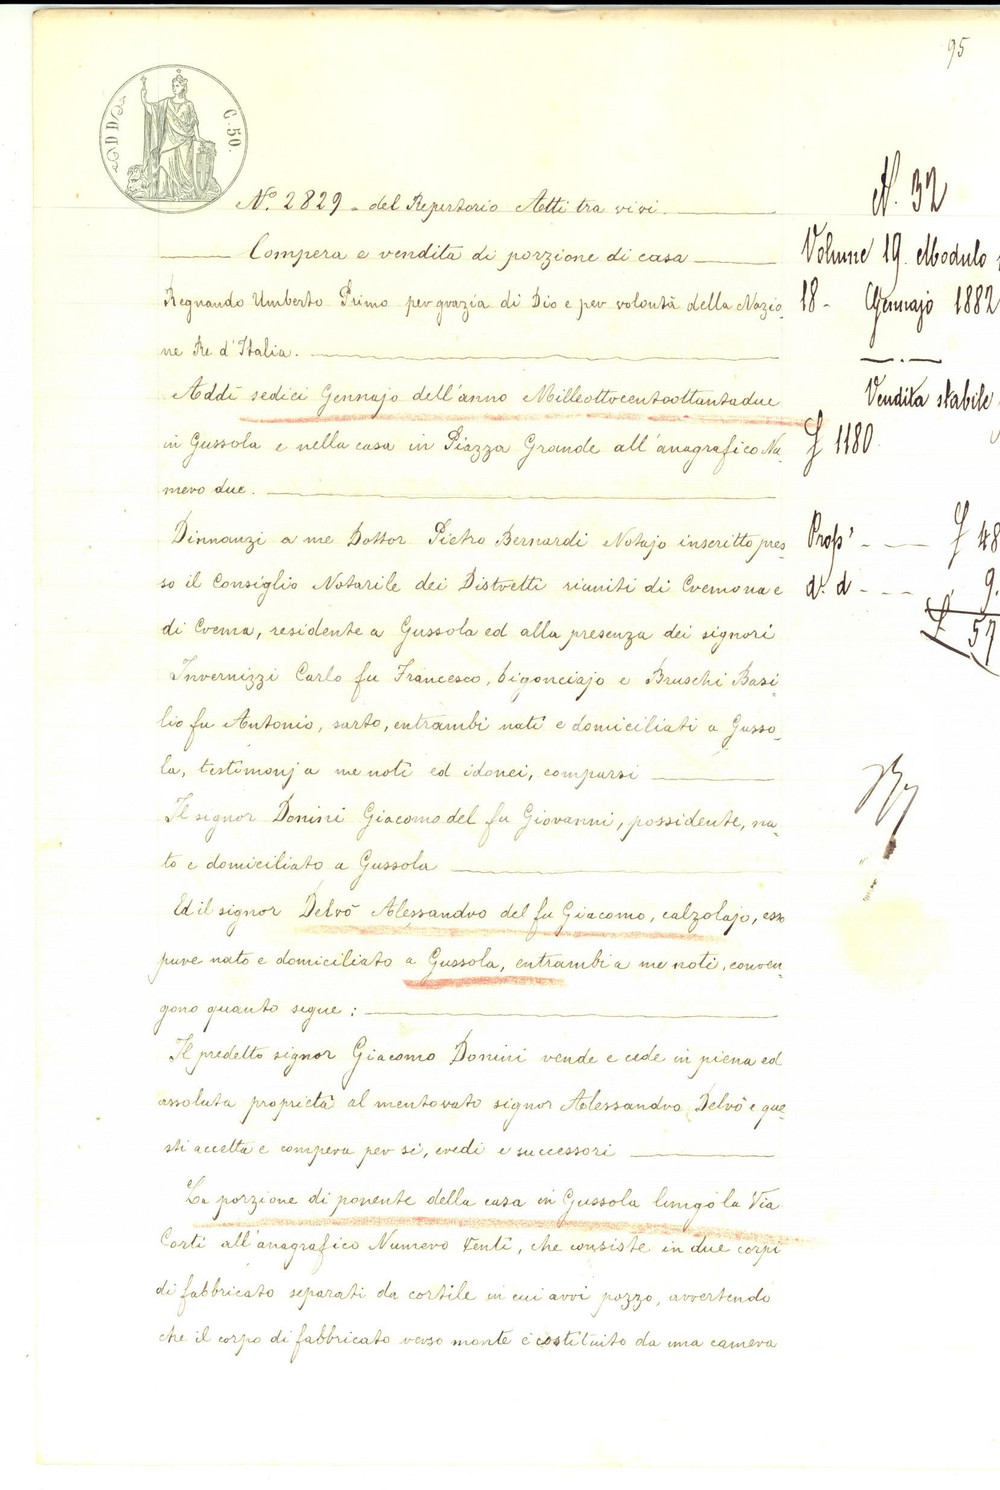 95
C. 50.
N.º 2829 - del Repertorio Atti tra vivi.
Compera e vendita di porzione di casa
Regnando Umberto Primo per grazia di Dio e per volontà della Nazio-
ne Re d'Italia.
Addì sedici Gennajo dell'anno Milleottocentoottantadue
in Gussola e nella casa in Piazza Grande all'anagrafico Nu-
mero due.
Dinnanzi a me Dottor Pietro Bernardi Notajo inscritto pres-
so il Consiglio Notarile dei Distretti riuniti di Cremona e
di Crema, residente a Gussola ed alla presenza dei signori
Invernizzi Carlo fu Francesco, bigonciajo e Bruschi Basi-
lio fu Antonio, sarto, entrambi nati e domiciliati a Gusso-
la, testimonj a me noti ed idonei, comparsi
Il signor Donini Giacomo del fu Giovanni, possidente, na-
to e domiciliato a Gussola
Ed il signor Delvò Alessandro del fu Giacomo, calzolajo, esso
pure nato e domiciliato a Gussola, entrambi a me noti, conven-
gono quanto segue:
Il predetto signor Giacomo Donini vende e cede in piena ed
assoluta proprietà al mentovato signor Alessandro Delvò e que-
sti accetta e compera per sè, eredi e successori
La porzione di ponente della casa in Gussola lungo la Via
Corti all'anagrafico Numero Venti, che consiste in due corpi
di fabbricato separati da cortile in cui avvi pozzo, avvertendo
che il corpo di fabbricato verso monte è costituito da una camera
N. 32
Volume 19. Modulo
18 - Gennajo 1882
Vendita stabile
£ 1180.
Prop' - £ 48
d. d - 9.
£ 57